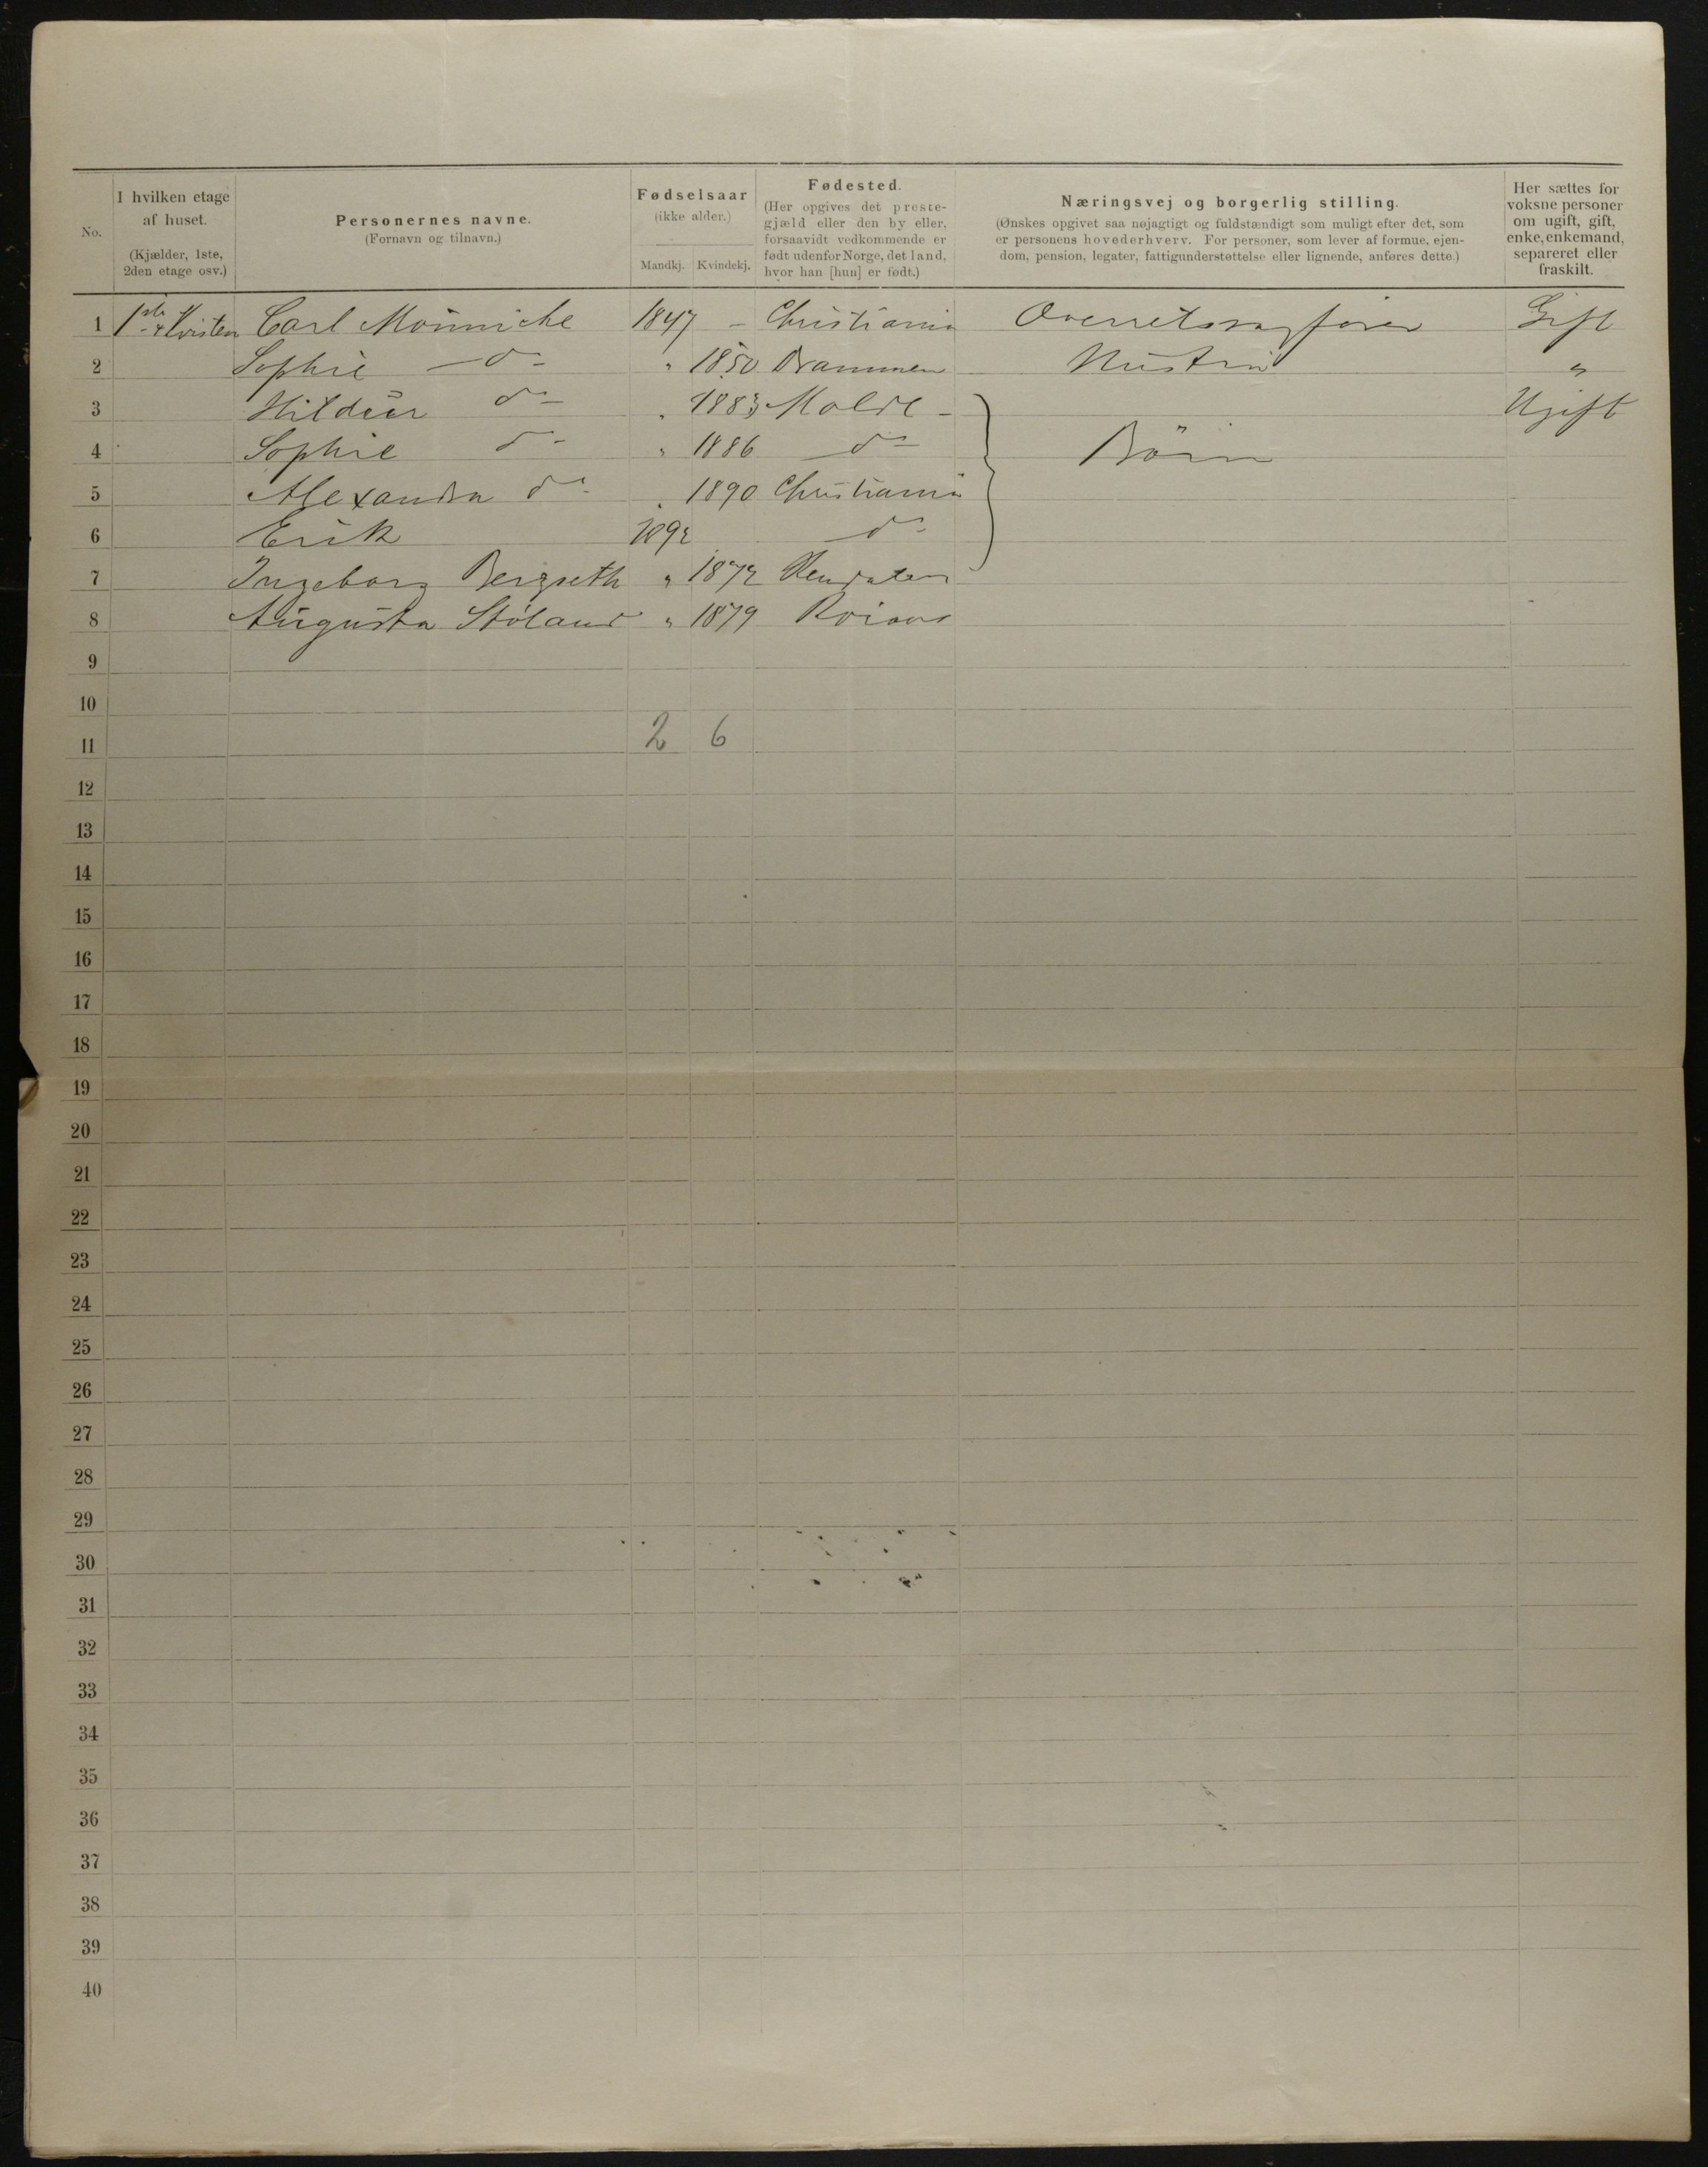 No.
I hvilken etage af huset. (Kjælder, 1ste, 2den etage osv.)
Personernes navne. (Fornavn og tilnavn.)
Fødselsaar (ikke alder.) Mandkj. Kvindekj.
Fødested. (Her opgives det prestegjæld eller den by eller, forsaavidt vedkommende er født udenfor Norge, det land, hvor han [hun] er født.)
Næringsvej og borgerlig stilling. (Ønskes opgivet saa nøjagtigt og fuldstændigt som muligt efter det, som er personens hovederhverv. For personer, som lever af formue, ejendom, pension, legater, fattigunderstøttelse eller lignende, anføres dette.)
Her sættes for voksne personer om ugift, gift, enke, enkemand, separeret eller fraskilt.
1 1ste & Kvisten Carl Mönniche 1847 - Christiania Overretssagfører Gift
2 Sophie do " 1850 Drammen Hustru "
3 Hildur do " 1883 Molde - Ugift
4 Sophie do " 1886 do Börn
5 Alexandra do " 1890 Christiania
6 Erik 1892 do
7 Ingeborg Bergseth " 1872
8 Augusta Stóland " 1879
9
10
11 2 6
12
13
14
15
16
17
18
19
20
21
22
23
24
25
26
27
28
29
30
31
32
33
34
35
36
37
38
39
40